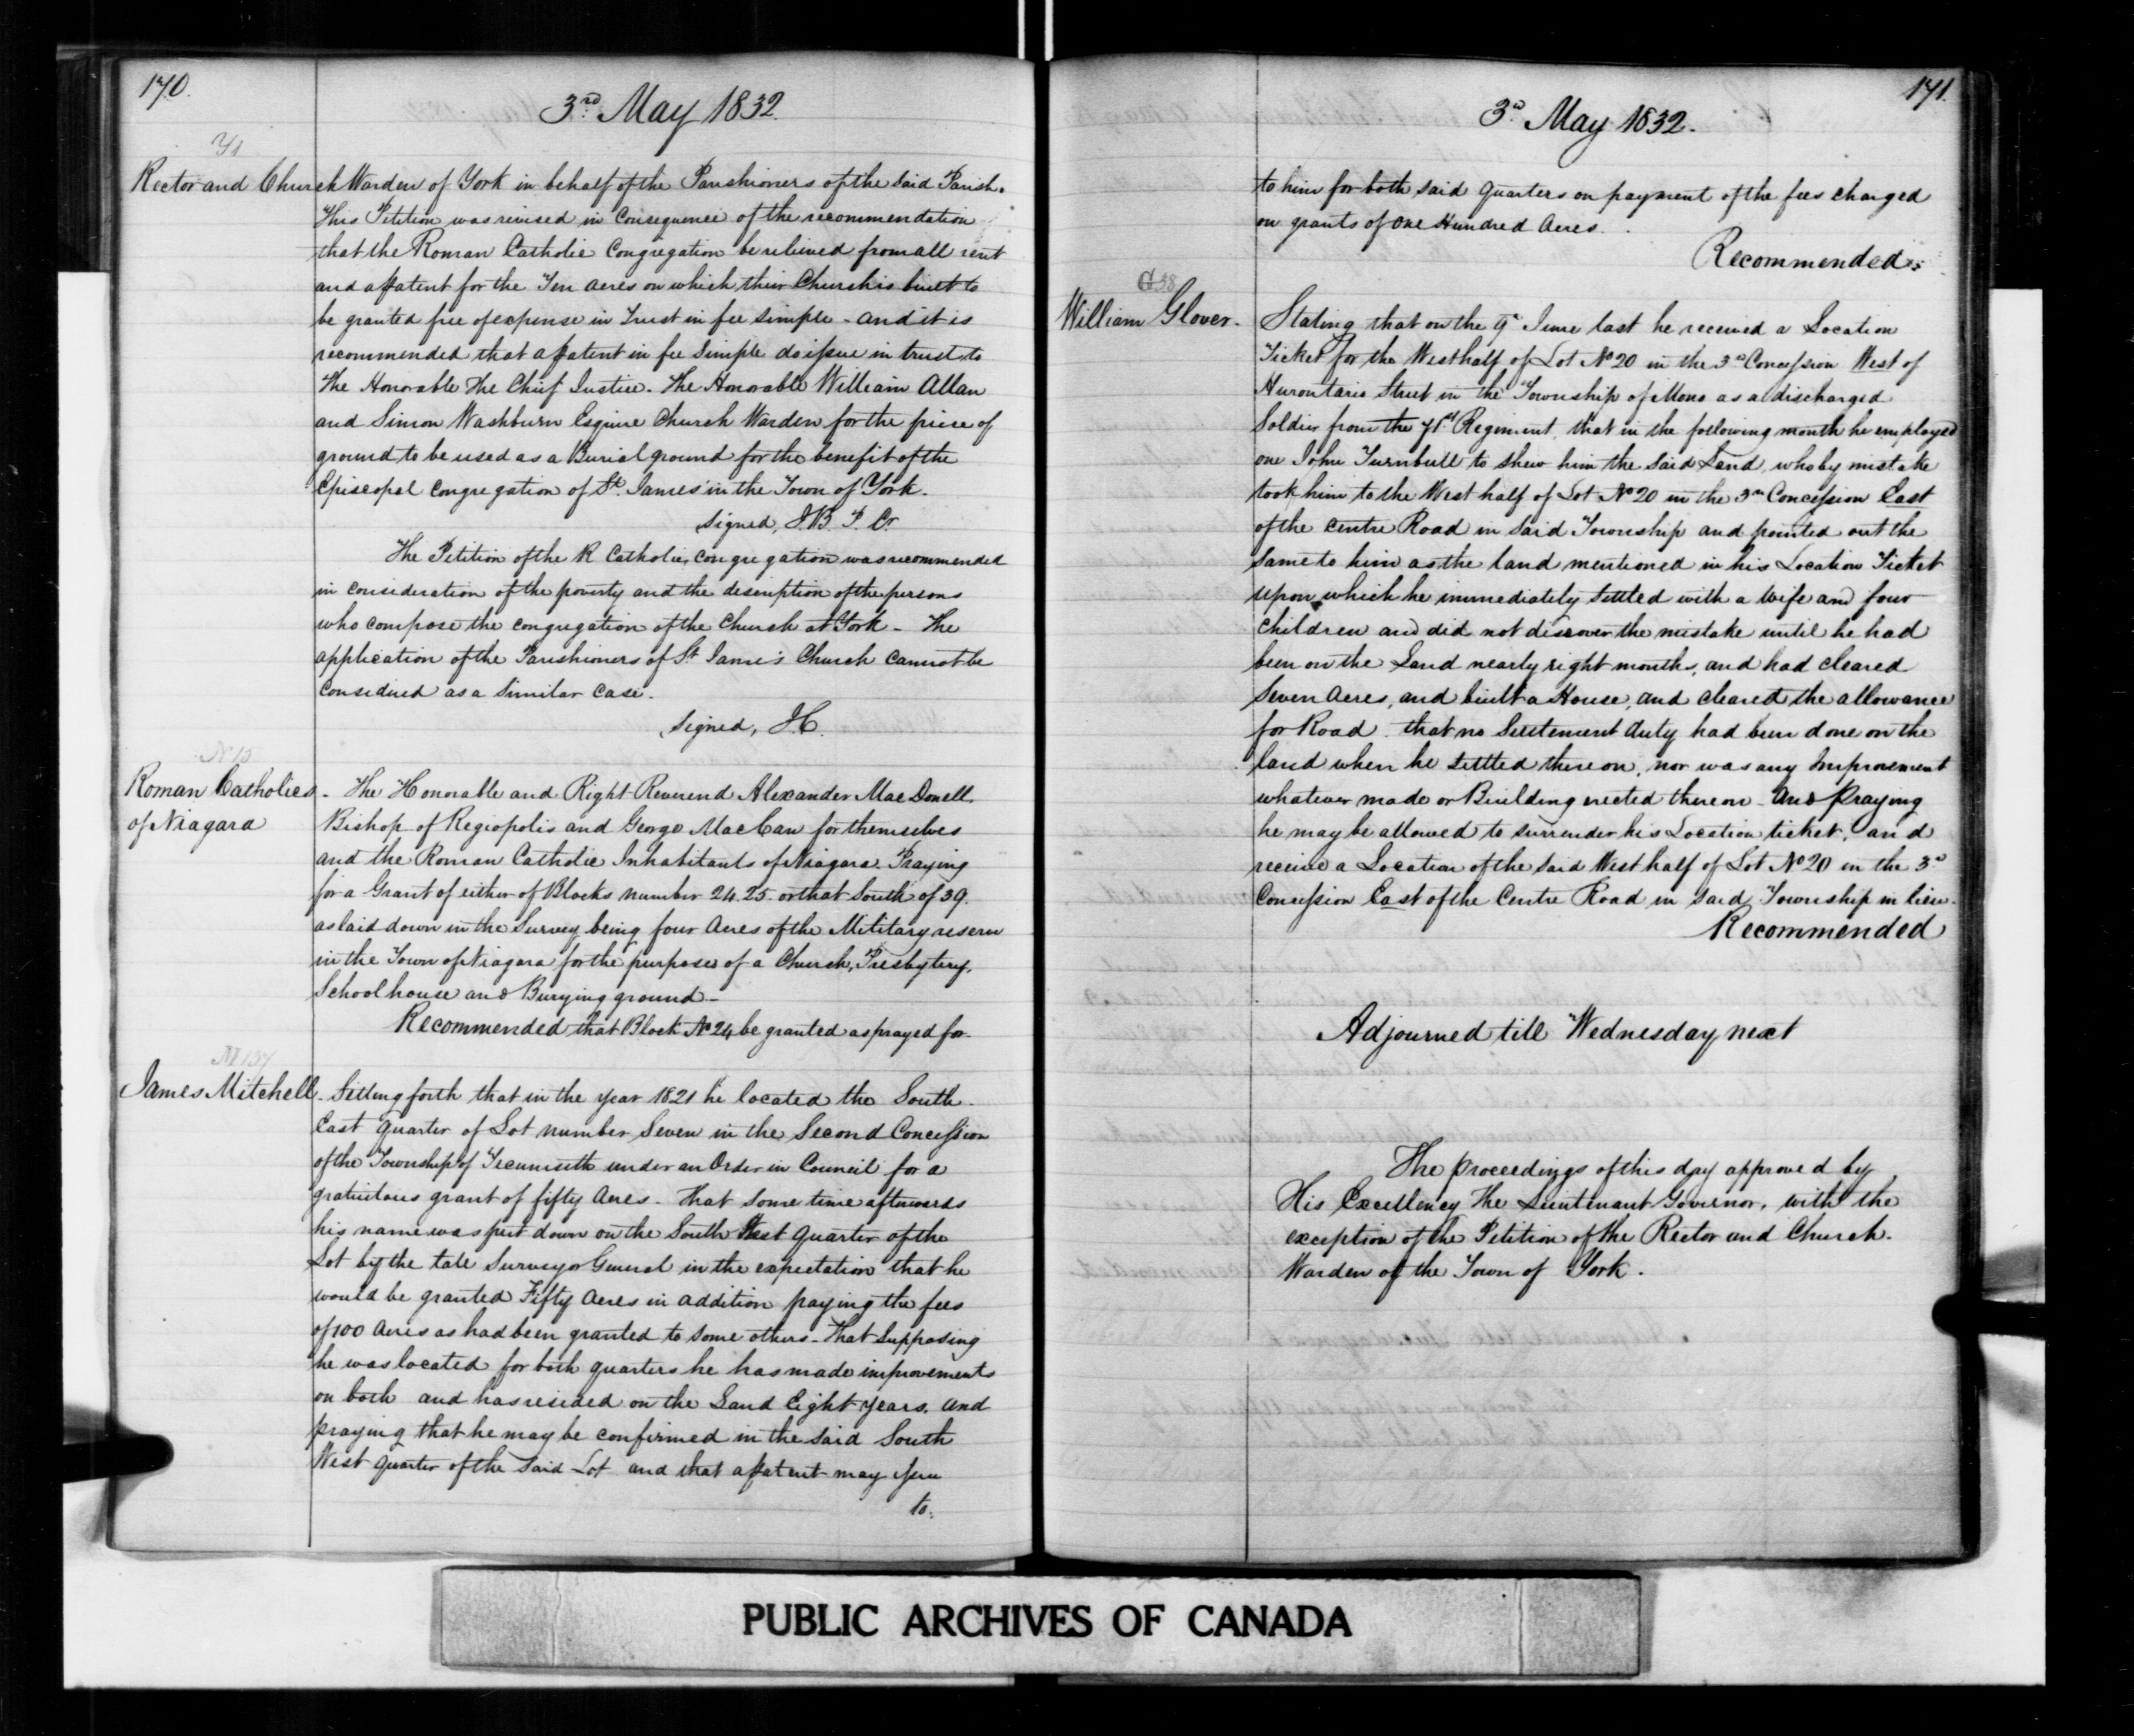 170.
3rd May 1832.
Y1
Rector and Church Warden of York in behalf of the Parishioners of the said Parish.
This Petition was revised in consequence of the recommendation
that the Roman Catholic Congregation be relieved from all rent
and a patent for the Ten acres on which their Church is built to
be granted free of expense in Trust in fee simple - and it is
recommended that a patent in fee simple do issue in trust to
The Honorable The Chief Justice. The Honorable William Allan
and Simon Washburn Esquire Church Warden for the piece of
ground to be used as a Burial ground for the benefit of the
Episcopal Congregation of St. James' in the Town of York.
Signed, J.B. P. Cr
The Petition of the R Catholic, congregation was recommended
in consideration of the poverty and the description of the persons
who compose the congregation of the Church at York - The
application of the Parishioners of St James's Church cannot be
considered as a similar case.
Signed, J.C.
N 15
Roman Catholics - The Honorable and Right Reverend Alexander Mac Donell,
of Niagara Bishop of Regiopolis and George MacCaw for themselves
and the Roman Catholic Inhabitants of Niagara. Praying
for a Grant of either of Blocks number 24. 25. or that South of 39.
as laid down in the Survey, being four Acres of the Military reserve
in the Town of Niagara for the purposes of a Church, Presbytery,
School house and Burying ground -
Recommended that Block No 24 be granted as prayed for.
M 137
James Mitchell. Setting forth that in the year 1821 he located the South
East quarter of Lot number Seven in the Second Concession
of the Township of Tecumseth under an Order in Council for a
gratuitous grant of fifty Acres - That some time afterwards
his name was put down on the South West quarter of the
Lot by the late Surveyor General in the expectation that he
would be granted Fifty Acres in addition paying the fees
of 100 Acres as had been granted to some others - That supposing
he was located for both quarters he has made improvements
on both and has resided on the Land Eight years. and
praying that he may be confirmed in the said South
West quarter of the said Lot and that a patent may issue
to.
171.
3d May 1832.
to him for both said quarters on payment of the fees charged
on grants of one Hundred Acres.
Recommended.
G 38
William Glover. Stating that on the 9th June last he received a Location
Ticket for the West half of Lot No 20 in the 3rd Concession West of
Hurontario Street in the Township of Mono as a discharged
Soldier from the 71st Regiment, that in the following month he employed
one John Turnbull to shew him the said Land, who by mistake
took him to the West half of Lot No 20 in the 3rd Concession East
of the Centre Road in said Township and pointed out the
same to him as the land mentioned in his Location Ticket
upon which he immediately settled with a wife and four
children and did not discover the mistake until he had
been on the Land nearly eight months, and had cleared
Seven Acres, and built a House, and cleared the allowance
for Road that no Settlement duty had been done on the
land when he settled thereon, nor was any Improvement
whatever made or Building erected thereon And Praying
he may be allowed to surrender his Location ticket, and
receive a Location of the said West half of Lot No 20 in the 3d
Concession East of the Centre Road in said Township in lieu.
Recommended
Adjourned till Wednesday next
The proceedings of this day approved by
His Excellency The Lieutenant Governor, with the
exception of the Petition of the Rector and Church.
Warden of the Town of York.
PUBLIC ARCHIVES OF CANADA